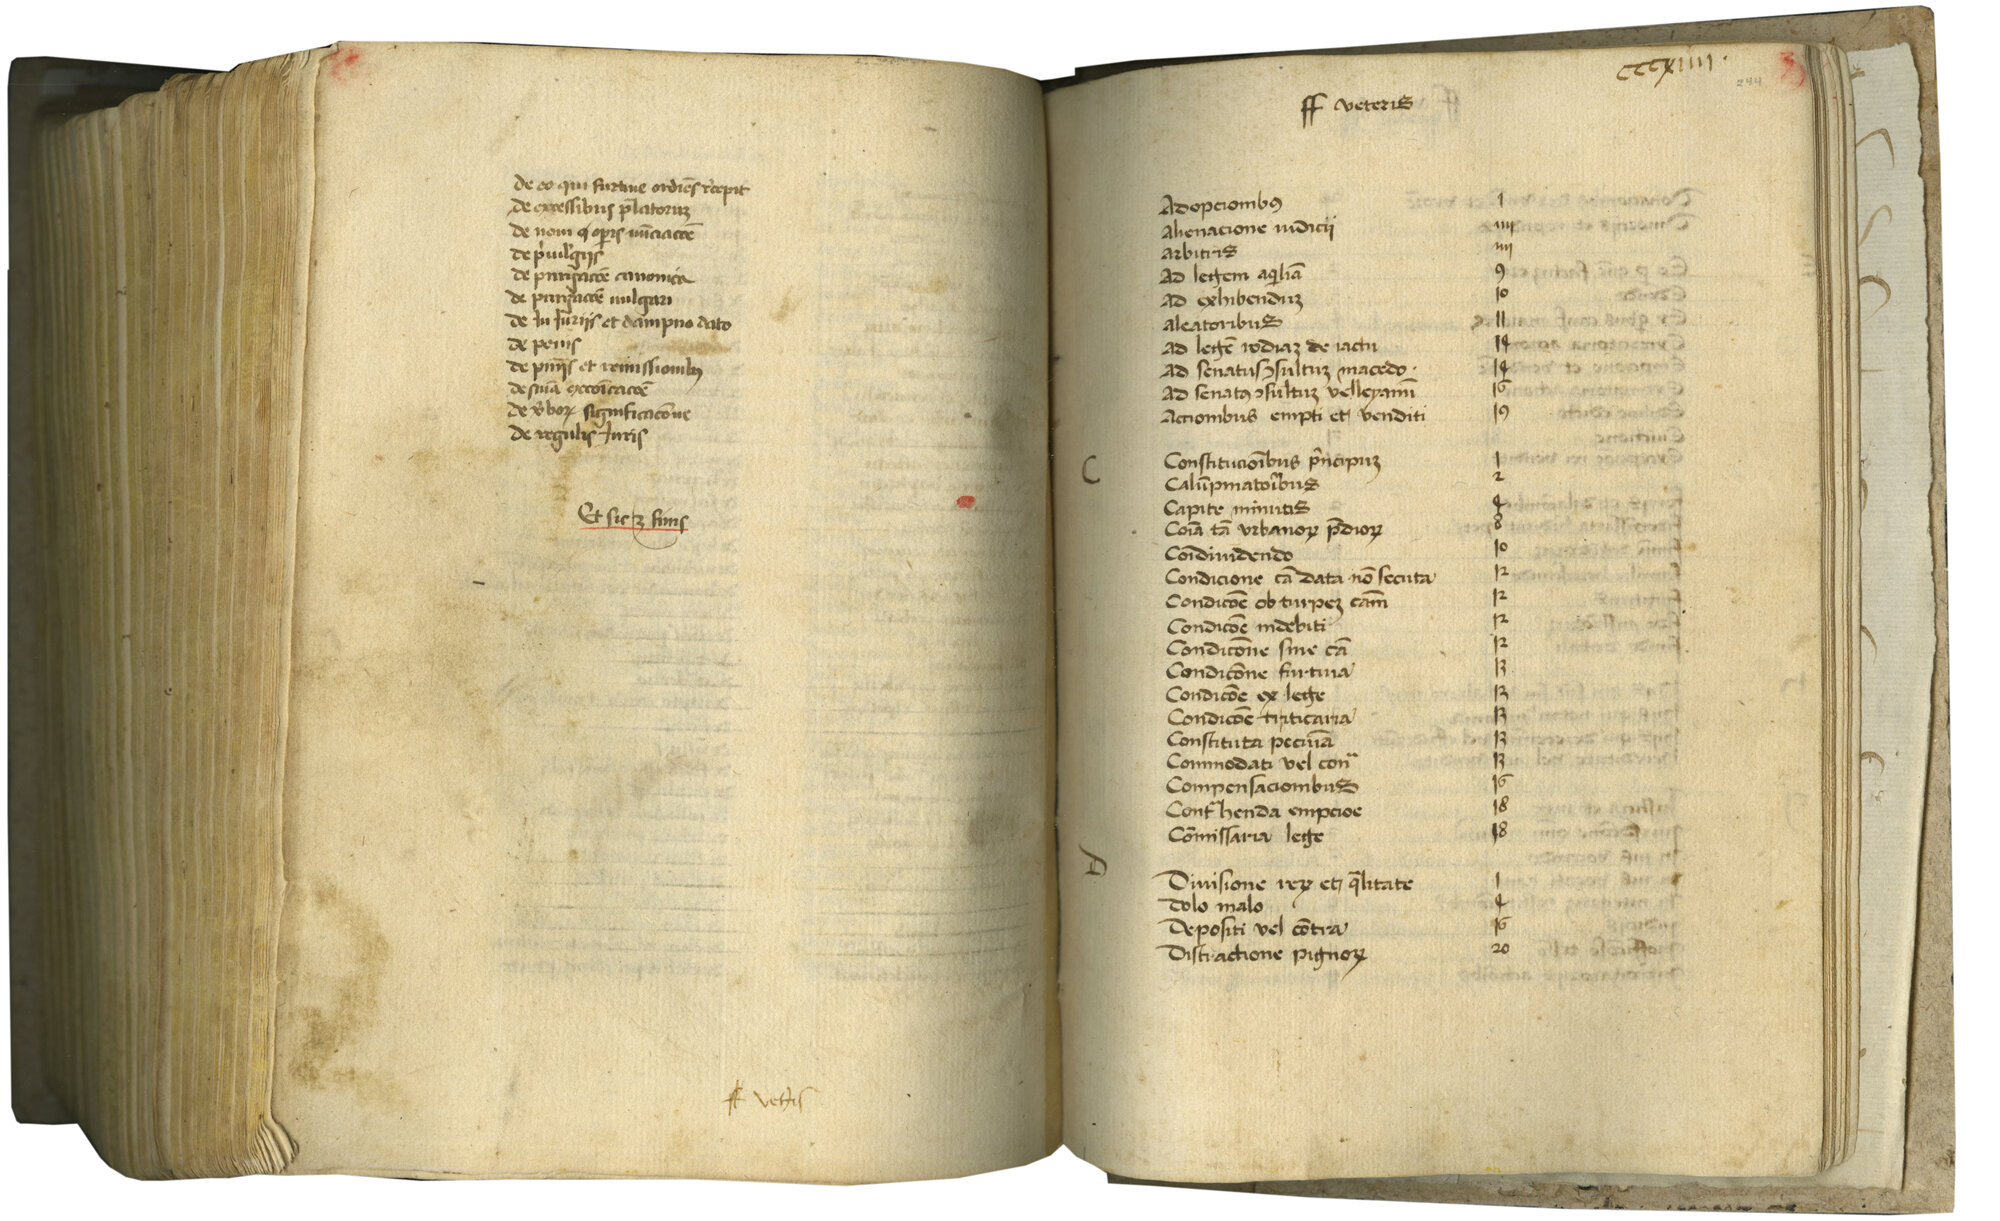 de eo qui furtive ordiēs rcepit
de excessibus p̄latorum
de novi operis nūciacōē
de p̄uilegijs
de purgacōē canonica
de purgacōē vulgari
de Iniurijs et dampno dato
de penis
de pn̄iis et remissionibꝰ
de sn̄ia excōīcacōē
de v̓boꝝ significacōne
de regulis Iuris
Et sic ē finis
ff vet̓is
cccxiiii.
244
ff veteris
Adopcionibꝰ 1
Alienacione iudicii iiii
Arbitris iiii
Ad legem aq̓liā 9
Ad exhibenduꝫ 10
Aleatoribus 11
Ad legē rodiaꝫ de iactu 14
Ad senatusꝯsultuꝫ macedo. 14
Ad senatꝰꝯsultuꝫ velleyanū 16
Accionibus empti et venditi 19
C
Constitucōibus p̓ncipuꝫ 1
Calūpniatoribus 2
Capite minutis 4
Coīa tā vrbanoꝝ p̄dioꝝ 8
Coīdiuidendo 10
Condicione cā data nō secuta 12
Condicōē ob turpeꝫ cām 12
Condicōē indebiti 12
Condicōne sine cā 12
Condicōne furtiua 13
Condicōē ex lege 13
Condicōē triticaria 13
Constituta pecuīa 13
Commodati vel conᵃ 13
Compensacionibus 16
Contᵃhenda empcioe 18
Cōmissaria lege 18
D
Diuisione reꝝ et q̄litate 1
Dolo malo 4
Depositi vel cōtra 16
Distractione pignoꝝ 20